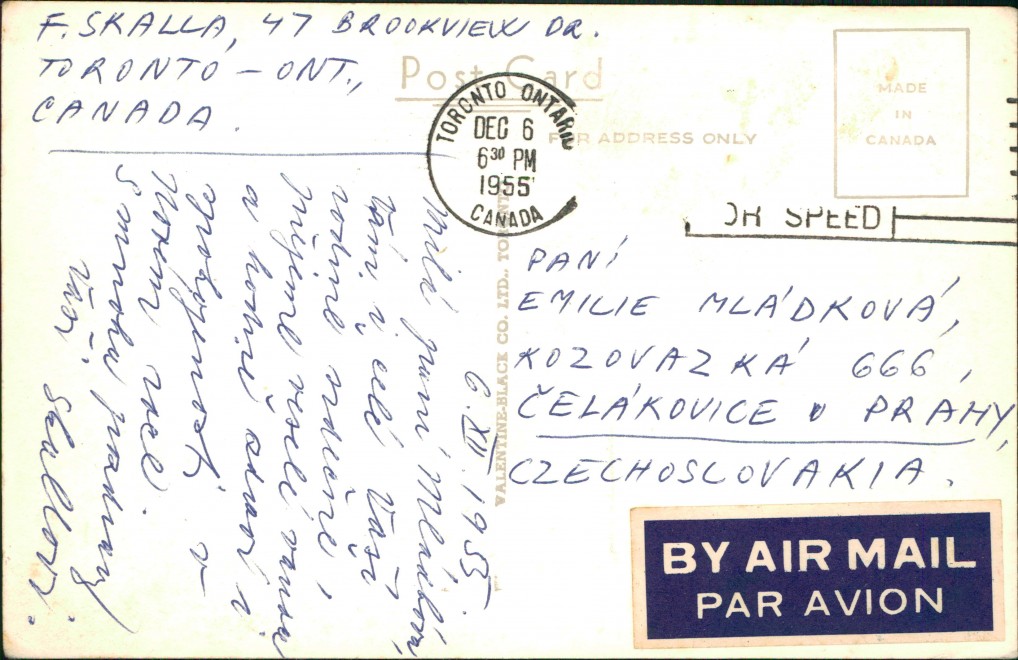 F. SKALLA, 47 BROOKVIEW DR.
TORONTO - ONT.,
CANADA.
Post Card
FOR ADDRESS ONLY
MADE
IN
CANADA
TORONTO ONTARIO
DEC 6
6 30 PM
1955
CANADA
OR SPEED
VALENTINE-BLACK CO. LTD., TORONTO
6. XII. 1955.
Milá paní Mládková,
Vám i celé Vaší
rodině srdečně
přejeme veselé vánoce
a hodně zdraví i
spokojenosti v
Novém roce.
S mnoha pozdravy
Vaši
Skallovi.
PANÍ
EMILIE MLÁDKOVÁ,
KOZOVAZKÁ 666,
ČELÁKOVICE U PRAHY,
CZECHOSLOVAKIA.
BY AIR MAIL
PAR AVION